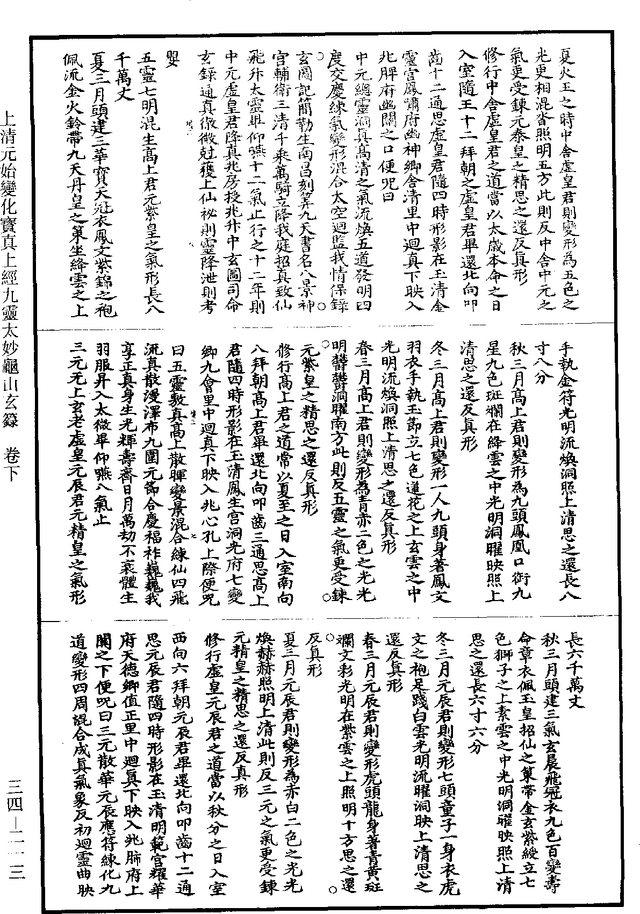 夏火王之時中舍虛皇君則變形為五色之
光更相混沓照明五方此則反中舍中元之
氣更受鍊元泰皇之精思之還反真形
修行中舍虛皇君之道當以太歲本命之日
入室隨王十二拜朝之虛皇君畢還北向叩
齒十二通思虛皇君隨四時形影在玉清金
靈宮鳳霄府幽神鄉舍清里中迴真下映入
兆脾府幽闕之口便呪曰
中元總靈洞真高清之氣流煥五道發明四
度交慶練氣變形混合太空迴監我情保錄
玄圖記簡勒生南昌刻筭九天書名八景神
宮輔衛三清千乘萬騎立降我庭招真致仙
飛升太靈畢仰嚥十二氣止行之十二年則
中元虛皇君降真兆房授兆升中玄圖司命
玄錄通真微微尅獲上仙祕則靈降泄則考
嬰
五靈七明混生高上君元紫皇之氣形長八
千萬丈
夏三月頭建三華寶天冠衣鳳文紫錦之袍
佩流金火鈴帶九天丹皇之策坐絳雲之上
手執金符光明流煥洞照上清思之還長八
寸八分
秋三月高上君則變形為九頭鳳凰口銜九
星九色斑斕在絳雲之中光明洞曜映照上
清思之還反真形
冬三月高上君則變形一人九頭身著鳳文
羽衣手執玉節立七色蓮花之上玄雲之中
光明流煥洞照上清思之還反真形
春三月高上君則變形為青赤二色之光光
明欝欝洞曜南方此則反五靈之氣更受鍊
元紫皇之精思之還反真形
修行高上君之道常以夏至之日入室南向
八拜朝高上君畢還北向叩齒三通思高上
君隨四時形影在玉清鳳生宮洞光府七變
鄉九會里中迴真下映入兆心孔上際便呪
曰五靈敷真高上散暉變景混合練仙四飛
流真散漫澤布九圍元節合慶福祚巍巍我
享正真身生光輝壽齊日月萬劫不衰體生
羽服昇入太微畢仰嚥八氣止
三元元上玄老虛皇元辰君元精皇之氣形
長六千萬丈
秋三月頭建三氣玄晨飛冠衣九色百變壽
命章衣佩玉皇招仙之策帶金玄紫綬立七
色獅子之上素雲之中光明洞曜映照上清
思之還長六寸六分
冬三月元辰君則變形七頭童子一身衣虎
文之袍足踐白雲光明流曜洞映上清思之
還反真形
春三月元辰君則變形虎頭龍身著青黃斑
斕文彩光明在紫雲之上照明十方思之還
反真形
夏三月元辰君則變形為赤白二色之光光
煥赫赫照明上清此則反三元之氣更受鍊
元精皇之精思之還反真形
修行虛皇元辰君之道當以秋分之日入室
西向六拜朝元辰君畢還北向叩齒十二通
思元辰君隨四時形影在玉清明範宮耀華
府天德鄉值正里中迴真下映入兆肺府上
闕之下便呪曰三元散華元辰應符練化九
道變形四周混合成真氣象反初迴靈曲映
上清元始變化寶真上經九靈太妙龜山玄籙 卷下
三四—二一三